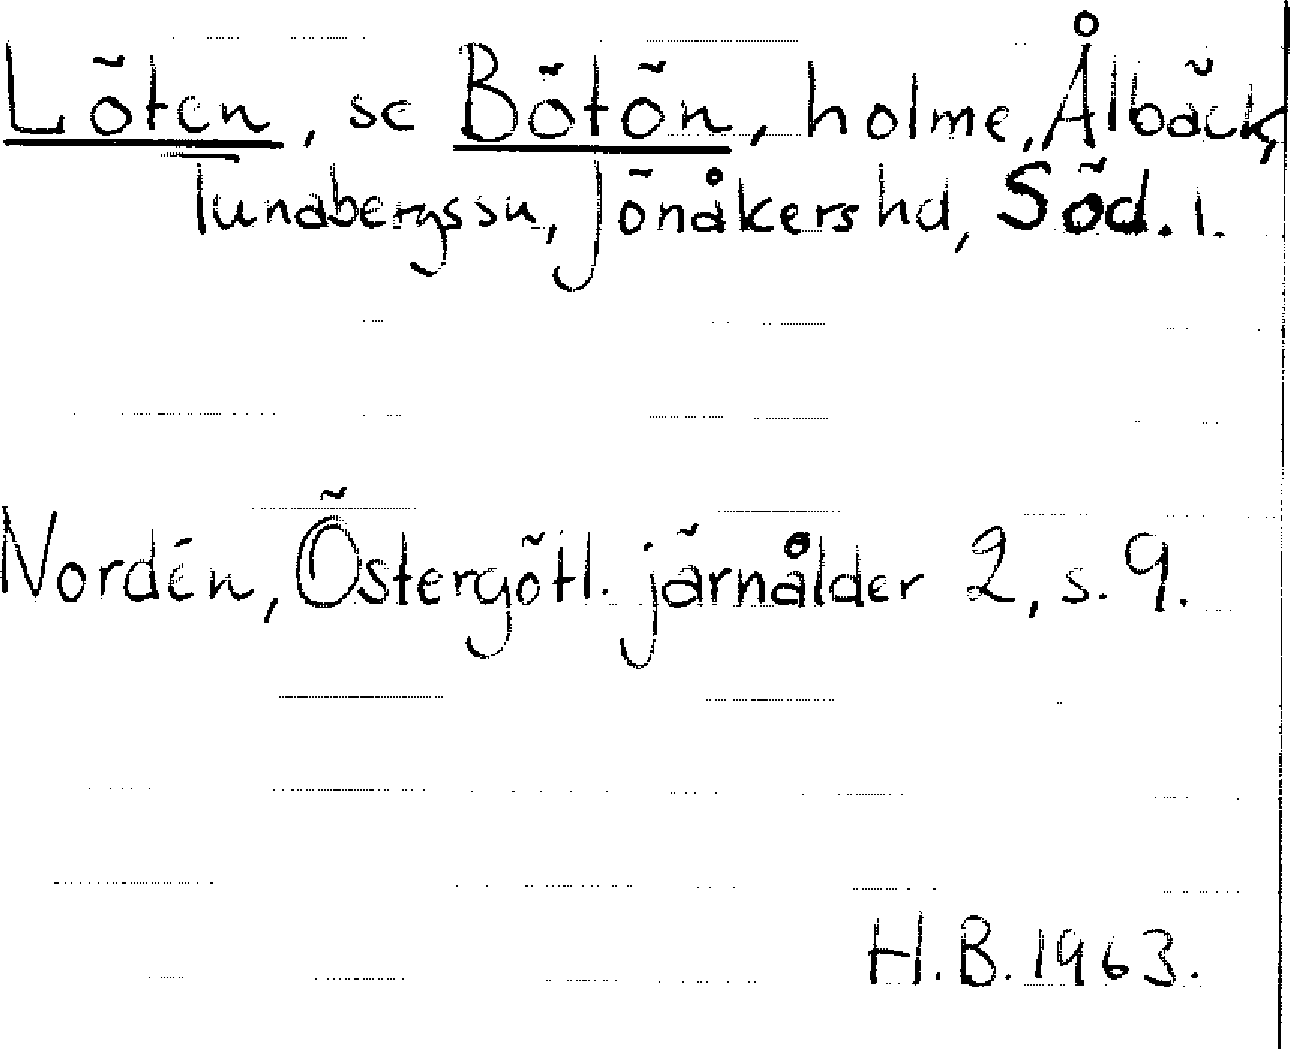 Löten, se Bötön, holme, Ålbäck,
Tunabergs sn, Jönåkers hd, Söd. l.
Nordén, Östergötl. järnålder 2, s. 9.
H.B. 1963.